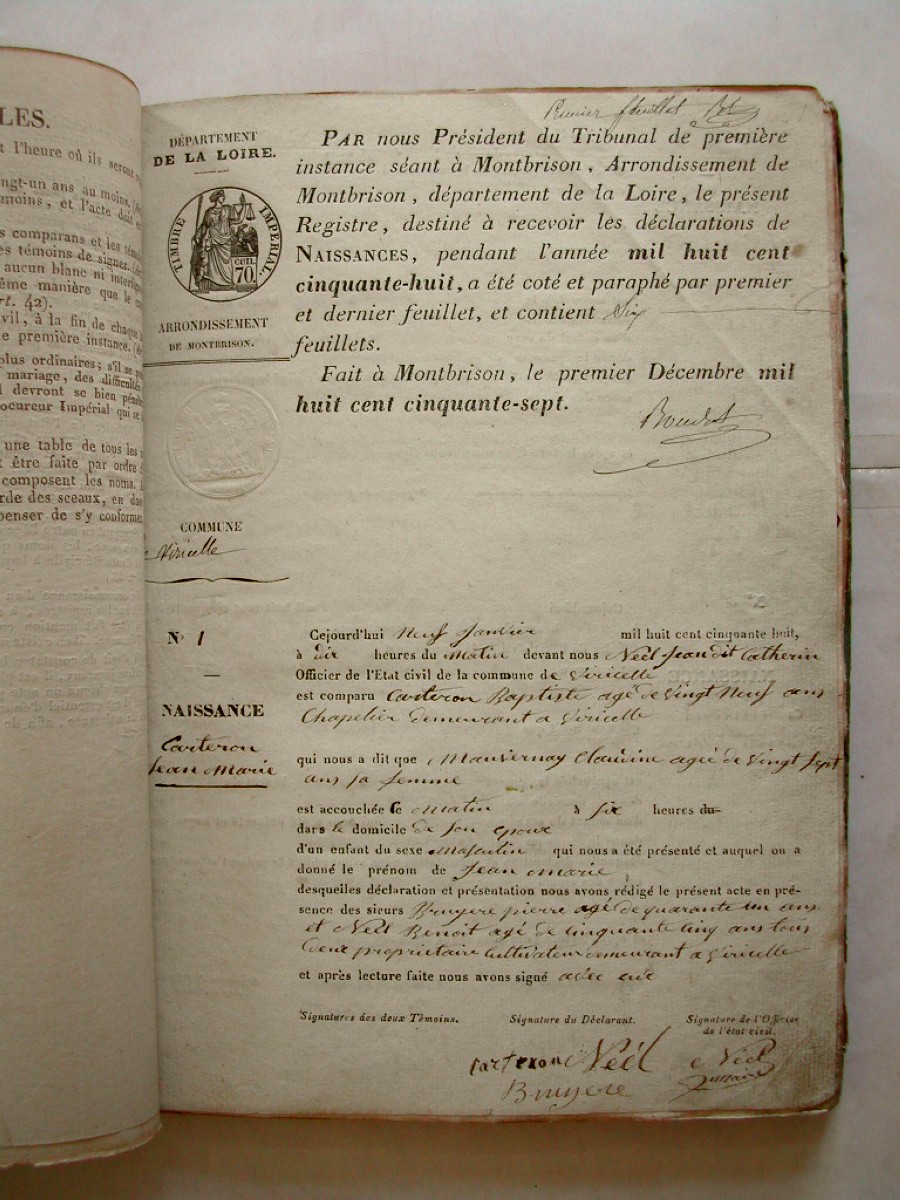 LES.
l'heure où ils seront
ngt-un ans au moins,
moins, et l'acte doit
s comparans et les témoins
es témoins de signer.
aucun blanc ni interligne
ême manière que le
rt. 42).
vil, à la fin de chaque
e première instance.
plus ordinaires; s'il se
mariage, des difficultés
devront se bien péné
ocureur Impérial qui se
une table de tous les
être faite par ordre
composent les noms.
rde des sceaux, en da
penser de s'y conformer
Premier feuillet
DÉPARTEMENT
DE LA LOIRE.
TIMBRE IMPÉRIAL.
70 cen.
ARRONDISSEMENT
DE MONTBRISON.
COMMUNE
Viricelle
PAR nous Président du Tribunal de première
instance séant à Montbrison, Arrondissement de
Montbrison, département de la Loire, le présent
Registre, destiné à recevoir les déclarations de
NAISSANCES, pendant l'année mil huit cent
cinquante-huit, a été coté et paraphé par premier
et dernier feuillet, et contient Six
feuillets.
Fait à Montbrison, le premier Décembre mil
huit cent cinquante-sept.
N° 1
NAISSANCE
Carteron
Jean Marie
Cejourd'hui Neuf Janvier mil huit cent cinquante huit,
à dix heures du matin devant nous Néel Jean dit Catherin
Officier de l'Etat civil de la commune de Viricelle
est comparu Carteron Baptiste agé de vingt Neuf ans
Chapelier demeurant a Viricelle
qui nous a dit que Mauvernay Claudine agée de vingt sept
ans sa femme
est accouchée le matin à six heures du
dans le domicile de son epoux
d'un enfant du sexe Masculin qui nous a été présenté et auquel on a
donné le prénom de Jean Marie
desquelles déclaration et présentation nous avons rédigé le présent acte en pré-
sence des sieurs Bruyere pierre agé de quarante un ans
et Néel Benoit agé de cinquante cinq ans tous
deux propriétaire cultivateur demeurant a Viricelle
et après lecture faite nous avons signé avec eux
Signatures des deux Témoins. Signature du Déclarant. Signature de l'Officier
de l'état civil.
carteron Néél Néel
Bruyere maire